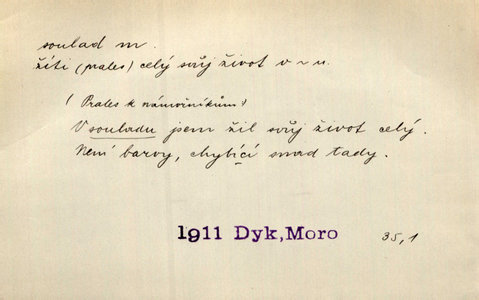 soulad m.
žíti (prales) celý svůj život v ~ u.
(Prales k námořníkům)
V souladu jsem žil svůj život celý.
Není barvy, chybící snad tady.
1911 Dyk, Moro 35,1